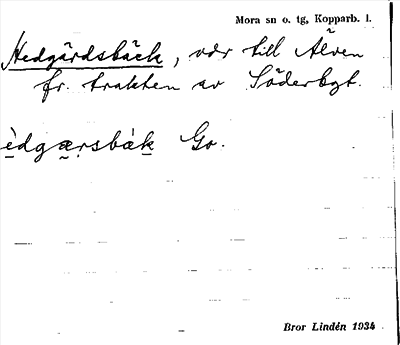 Mora sn o. tg, Kopparb. l.
Hedgårdsbäck, vdr till Älven
fr. trakten av Söderbgt.
èdgæṛsbàk Go.
Bror Lindén 1934